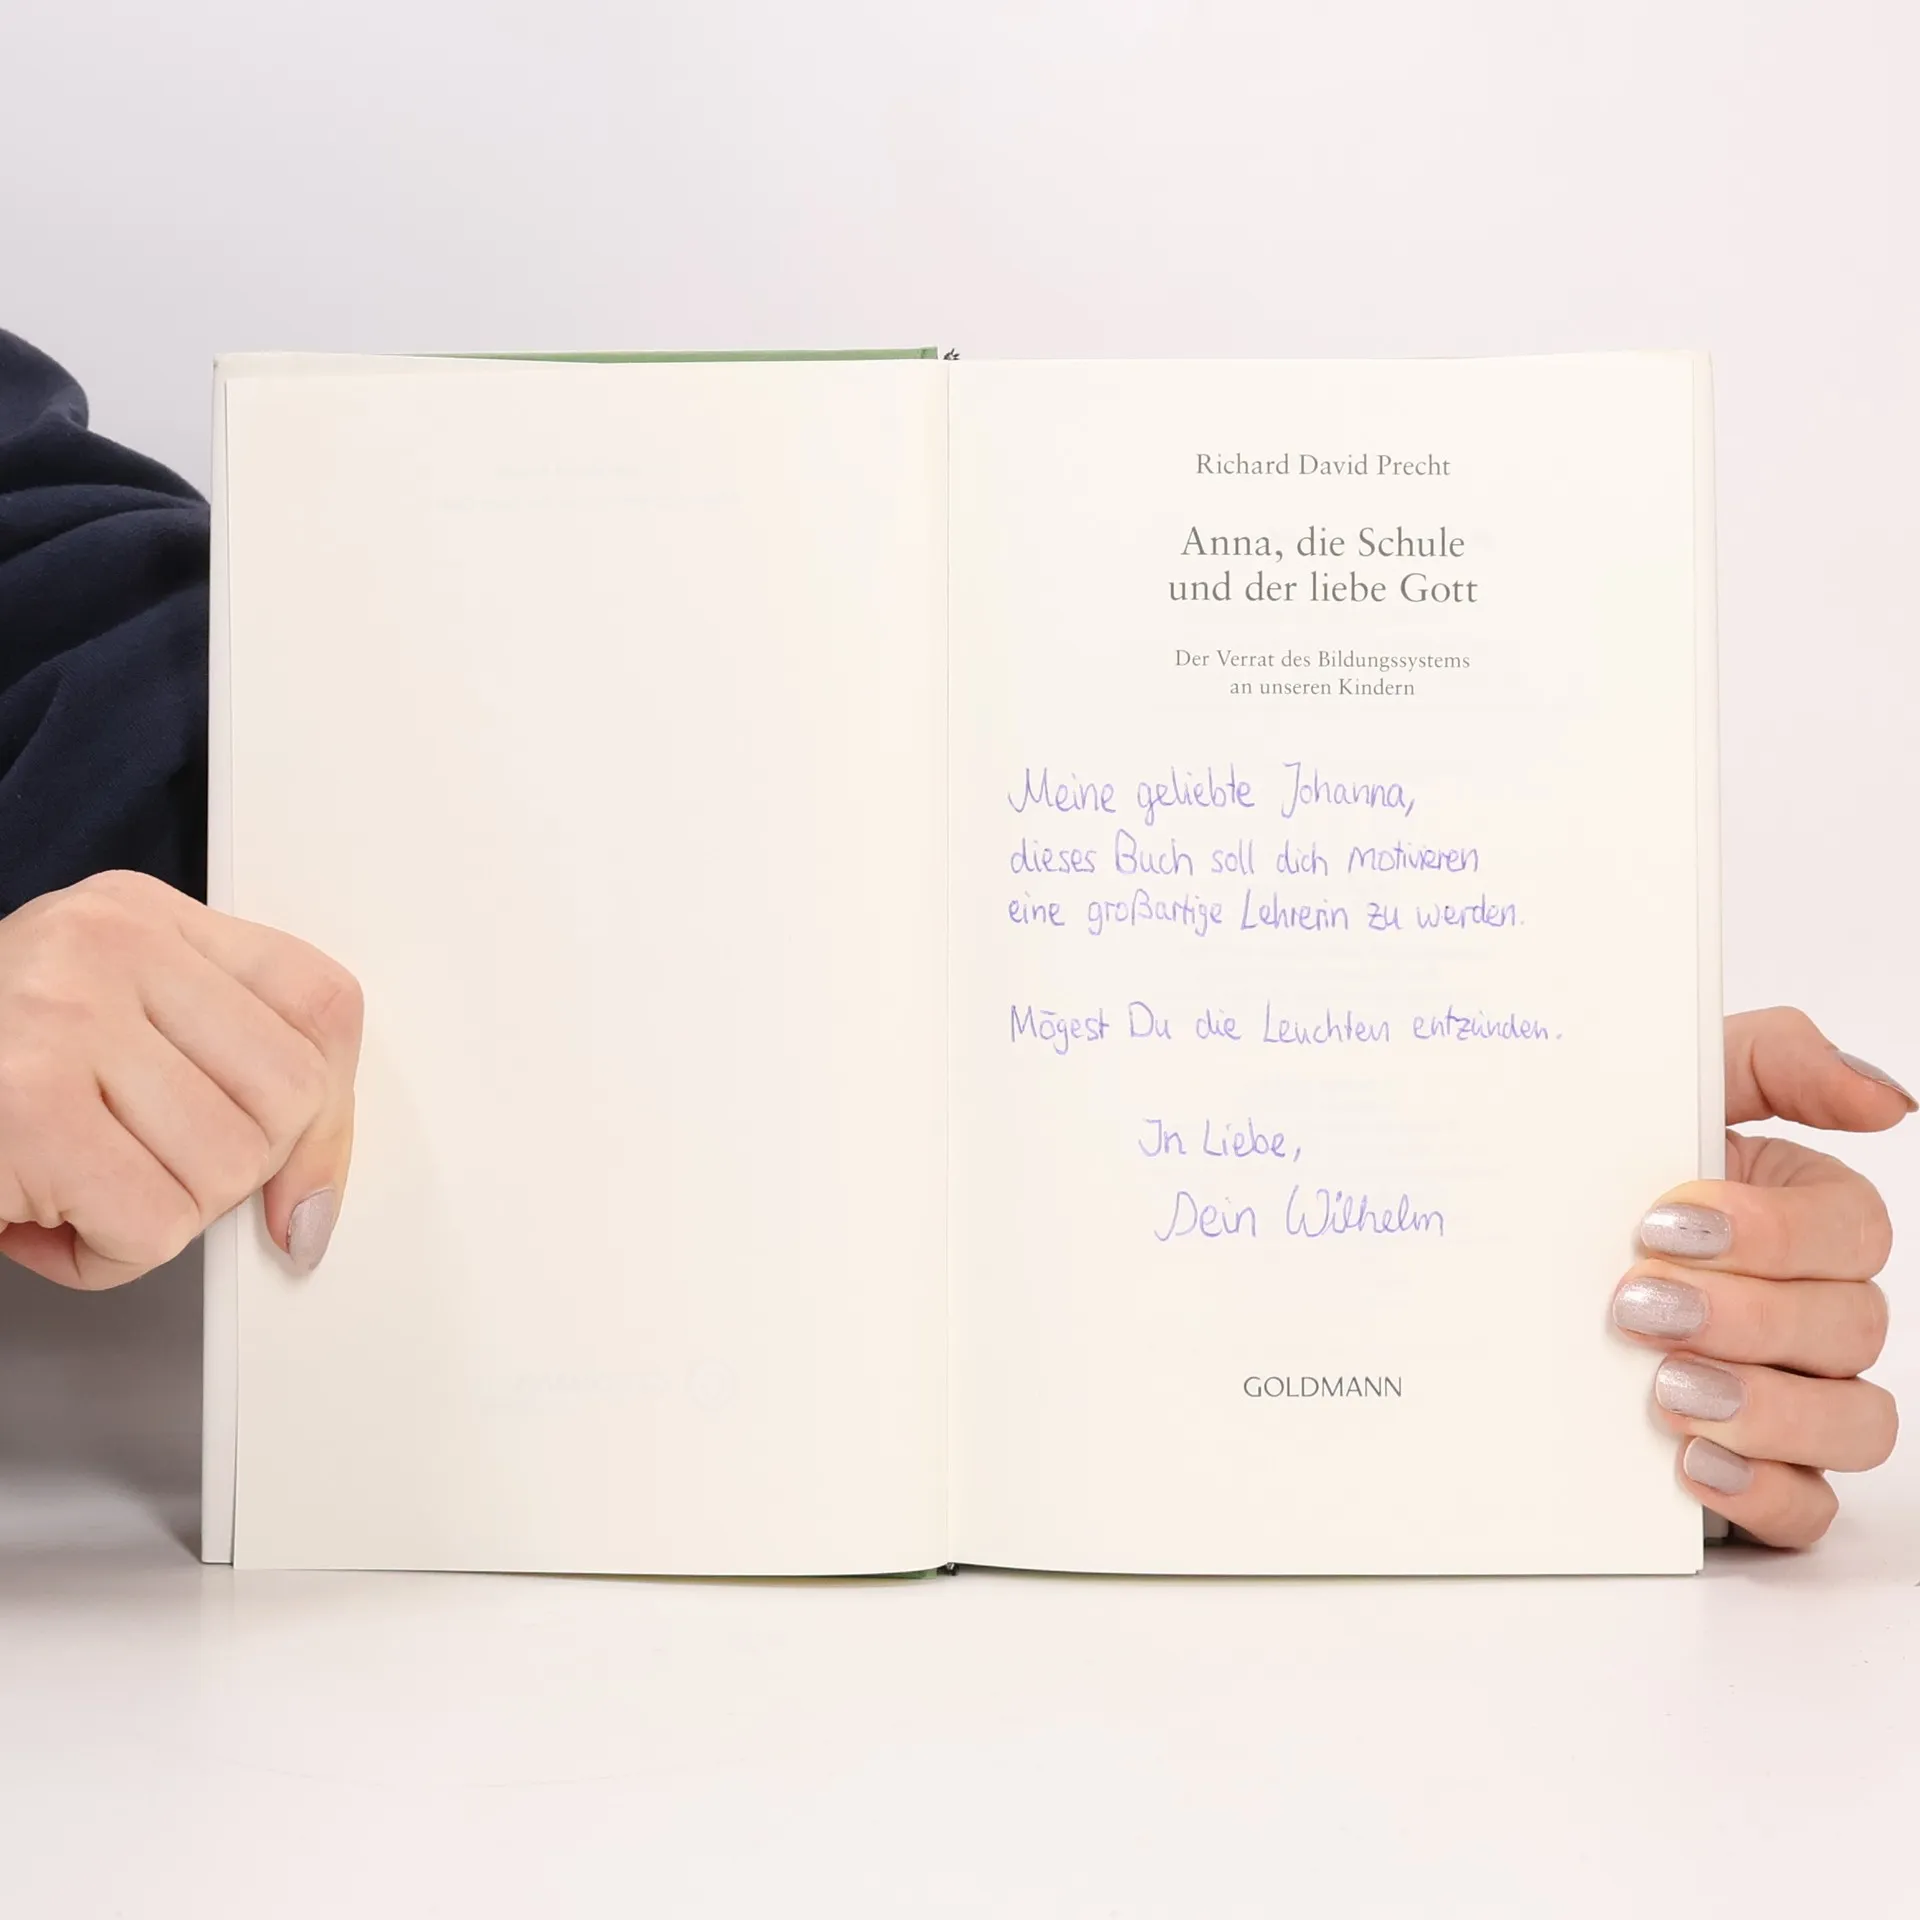 Richard David Precht
Anna, die Schule
und der liebe Gott
Der Verrat des Bildungssystems
an unseren Kindern
Meine geliebte Johanna,
dieses Buch soll dich motivieren
eine großartige Lehrerin zu werden.
Mögest Du die Leuchten entzünden.
In Liebe,
Dein Wilhelm
GOLDMANN